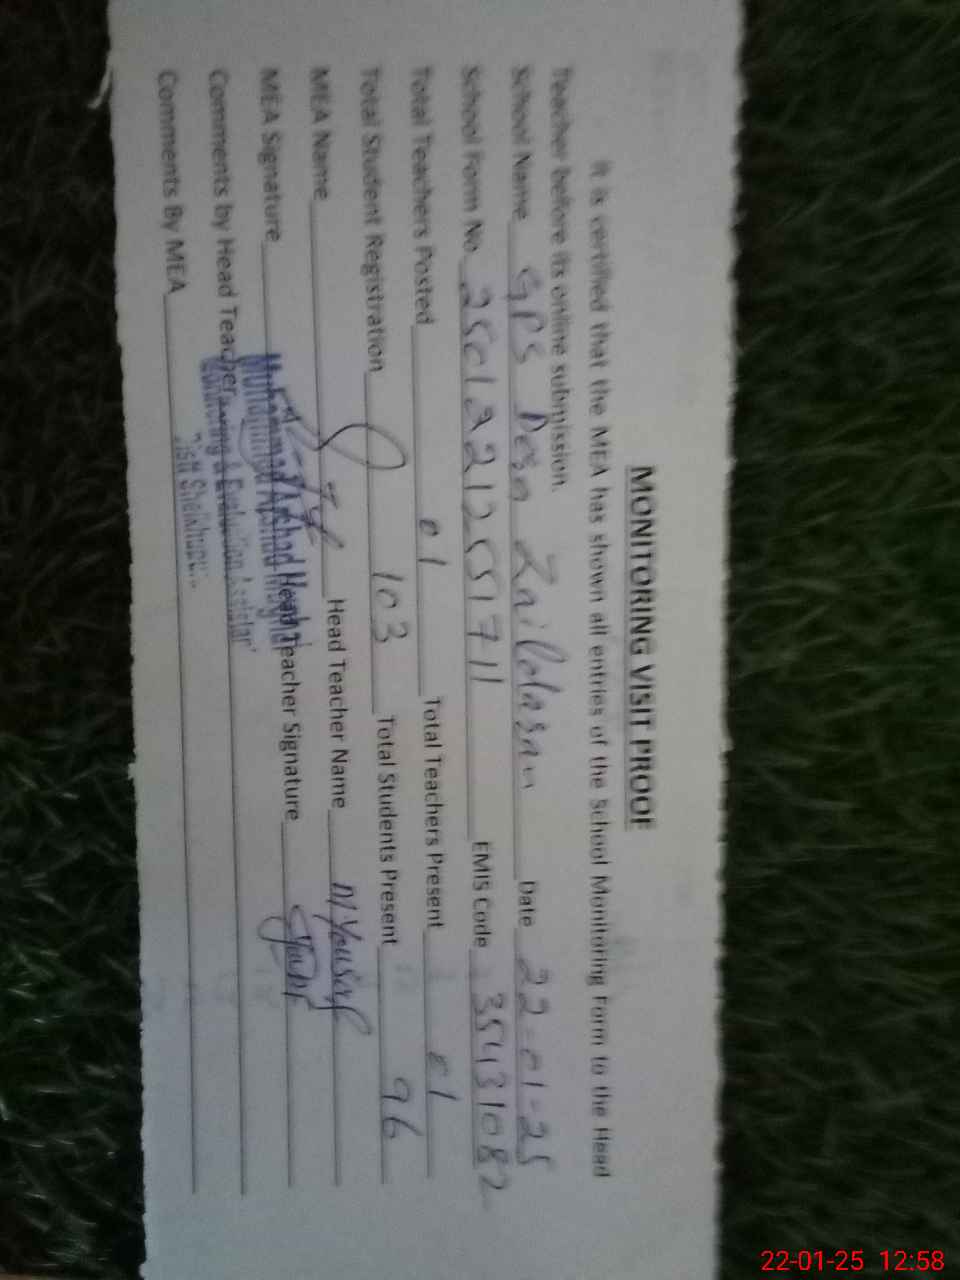 MONITORING VISIT PROOF
It is certified that the MEA has shown all entries of the School Monitoring Form to the Head
Teacher before its online submission.
School Name GPS Dera Date 22-01-25
School Form No. EMIS Code 35431082
Total Teachers Posted 01 Total Teachers Present 01
Total Student Registration 103 Total Students Present 96
MEA Name Head Teacher Name M Yousaf
MEA Signature Head Teacher Signature
Muhammad Arshad
Comments by Head Teacher
Comments By MEA
22-01-25 12:58